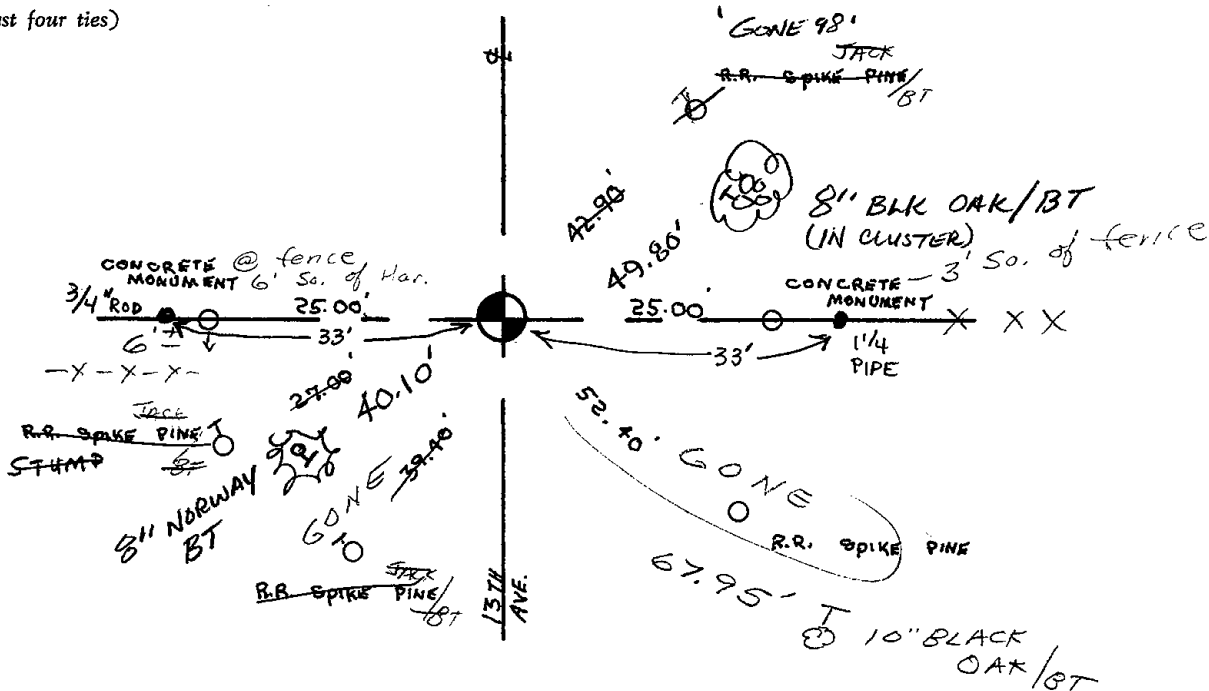 st four ties)
℄
'GONE 98'
JACK
R.R. SPIKE PINE/BT
42.90'
49.80'
8" BLK OAK/BT
(IN CLUSTER)
CONCRETE MONUMENT
@ fence
6' So. of
3/4" ROD
25.00'
33'
6'
-X-X-X-
25.00'
CONCRETE MONUMENT
3' So. of fence
X X X
33'
1 1/4
PIPE
27.00'
40.10'
JACK
R.R. SPIKE PINE
STUMP
BT
8" NORWAY
BT
GONE
39.40'
JACK
R.R. SPIKE PINE/BT
13TH
AVE.
52.40'
GONE
R.R. SPIKE PINE
67.95'
10" BLACK
OAK/BT